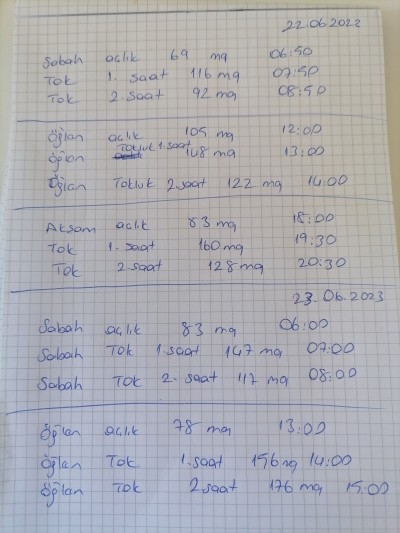 22.06.2022
Sabah açlık 69 mg 06:50
Tok 1. saat 116 mg 07:50
Tok 2. saat 92 mg 08:50
Öğlan açlık 105 mg 12:00
Öğlan Tokluk 1.saat 148 mg 13:00
Öğlan Tokluk 2.saat 122 mg 14:00
Akşam açlık 83 mg 18:00
Tok 1. saat 160 mg 19:30
Tok 2.saat 128 mg 20:30
23.06.2023
Sabah açlık 83 mg 06:00
Sabah Tok 1.saat 147 mg 07:00
Sabah Tok 2. saat 117 mg 08:00
Öğlan açlık 78 mg 13:00
Öğlan Tok 1.saat 14:00
Öğlan Tok 2.saat 176 mg 15:00